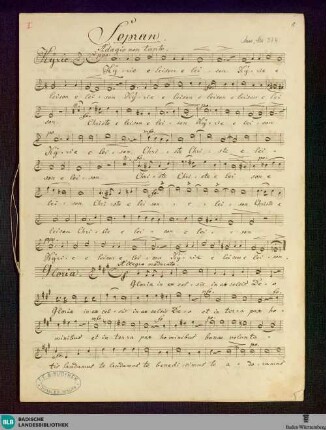 Sopran
Adagio non tanto
Kyrie
Ky-rie e lei-son Ky-rie e
leison e lei-son Kyrie e leison e leison e lei
son Christe e leison e lei-son Kyrie e
Ky-rie e lei-son Chri-ste Chri-ste e lei-
son e lei-son Chri-ste Chri-ste e leison e
lei-son Chri-ste e lei-son Christe e
leison Chri-ste e lei-son
Kyrie e lei-son Kyrie e leison e lei-son
Allegro moderato
Gloria
Gloria in ex cel-sis in excelsis De-o
Gloria in ex cel-sis in excelsis De-o et in terra pax ho-
minibus et in terra pax hominibus bonae volunta-
tis laudamus te laudamus te benedi-cimus te a-do-ramus
BADISCHE
LANDESBIBLIOTHEK
Baden-Württemberg